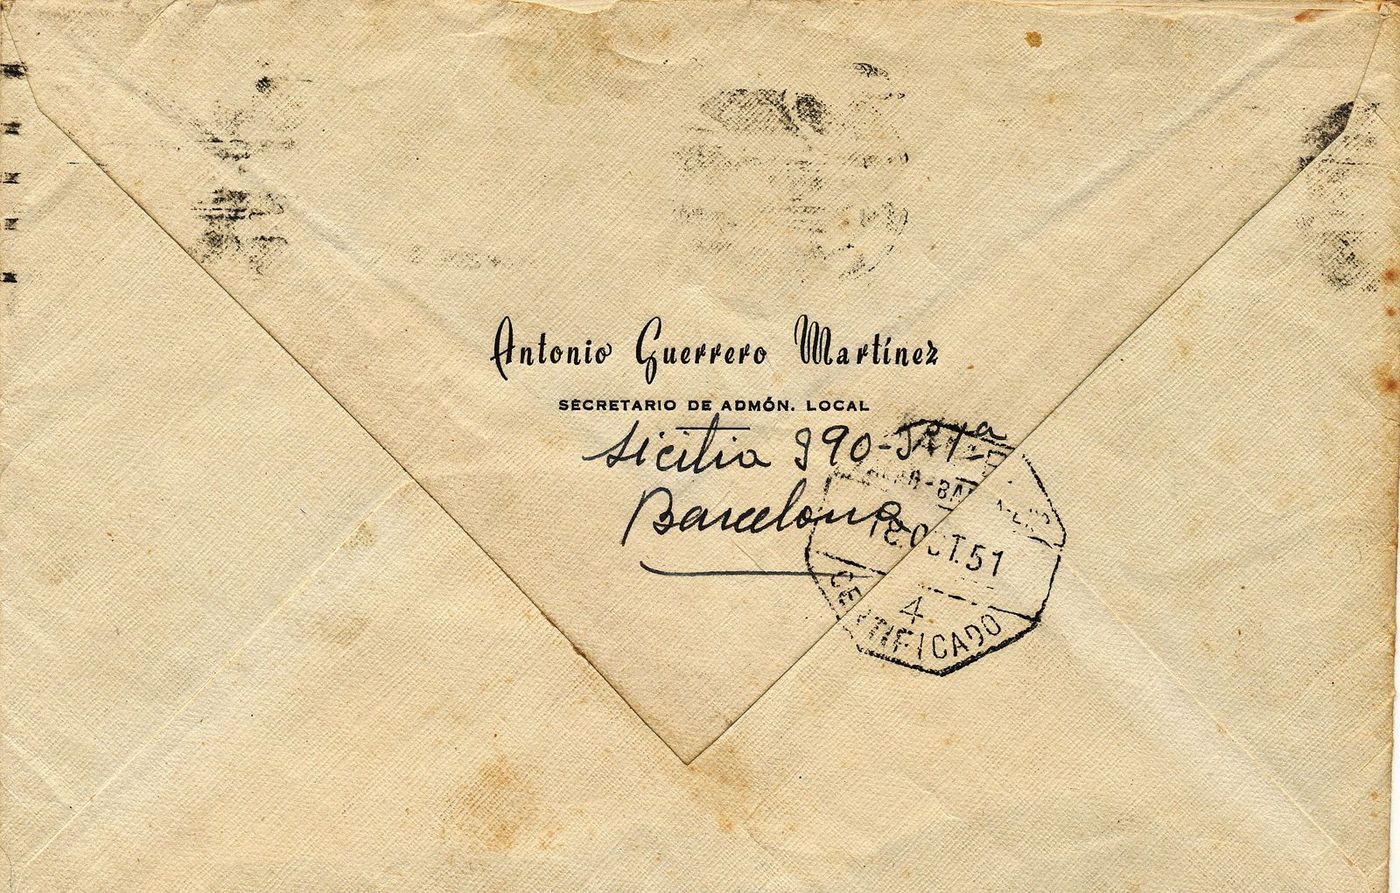 Antonio Guerrero Martínez
SECRETARIO DE ADMÓN. LOCAL
Sicilia 390-
Barcelona
18.OCT.51
4
CERTIFICADO